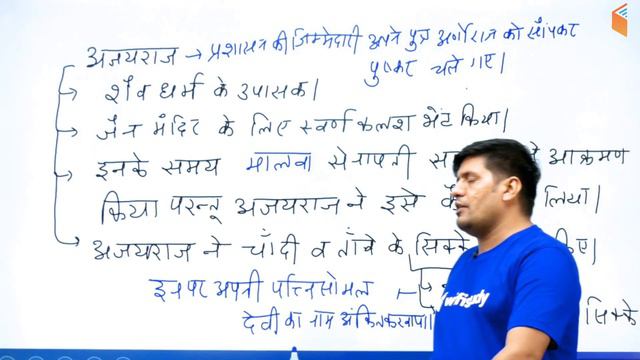 अजयराज → प्रशासन की जिम्मेदारी अपने पुत्र अर्णोराज को सौंपकर
पुष्कर चले गए।
→ शैव धर्म के उपासक।
→ जैन मंदिर के लिए स्वर्ण कलश भेंट किया।
→ इनके समय मालवा सेनापती आक्रमण
किया परन्तू अजयराज ने इसे लिया।
अजयराज ने चाँदी व ताँबे के सिक्के
इनपर अपनी पत्नि सोमल
देवी का नाम अंकित करवाया।
सिक्के
wifistudy